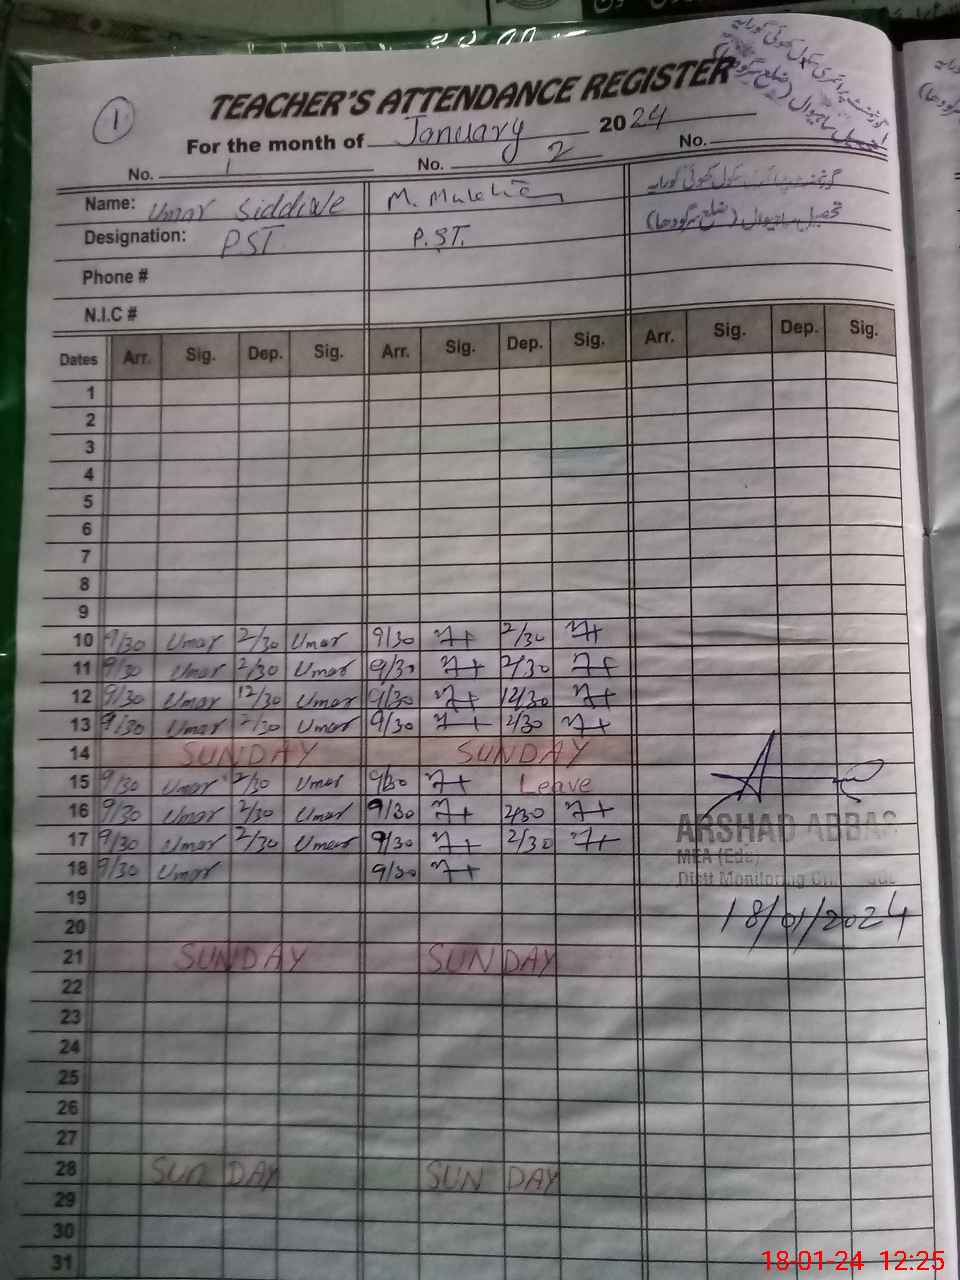 گورنمنٹ پرائمری سکول کھوئی گورایہ
تحصیل ساہیوال (ضلع سرگودھا)
1
TEACHER'S ATTENDANCE REGISTER
For the month of January 2024
No. 1 No. 2 No.
Name: Umar Siddique M.
Designation: PST P.ST.
تحصیل ساہیوال (ضلع سرگودھا)
Phone #
N.I.C #
Dates Arr. Sig. Dep. Sig. Arr. Sig. Dep. Sig. Arr. Sig. Dep. Sig.
1
2
3
4
5
6
7
8
9
10 9/30 Umar 2/30 Umar 9/30 2/30
11 9/30 Umar 2/30 Umar 9/30 2/30
12 9/30 Umar 12/30 Umar 9/30 12/30
13 9/30 Umar 2/30 Umar 9/30 2/30
14 SUNDAY SUNDAY
15 9/30 Umar 2/30 Umar 9/30 Leave
16 9/30 Umar 2/30 Umar 9/30 2/30
17 9/30 Umar 2/30 Umar 9/30 2/30
ARSHAD ABBAS
MEA (Edu)
18 9/30 Umar 9/30
Distt Monitoring
19
18/01/2024
20
21 SUNDAY SUNDAY
22
23
24
25
26
27
28 SUNDAY SUNDAY
29
30
31
18-01-24 12:25